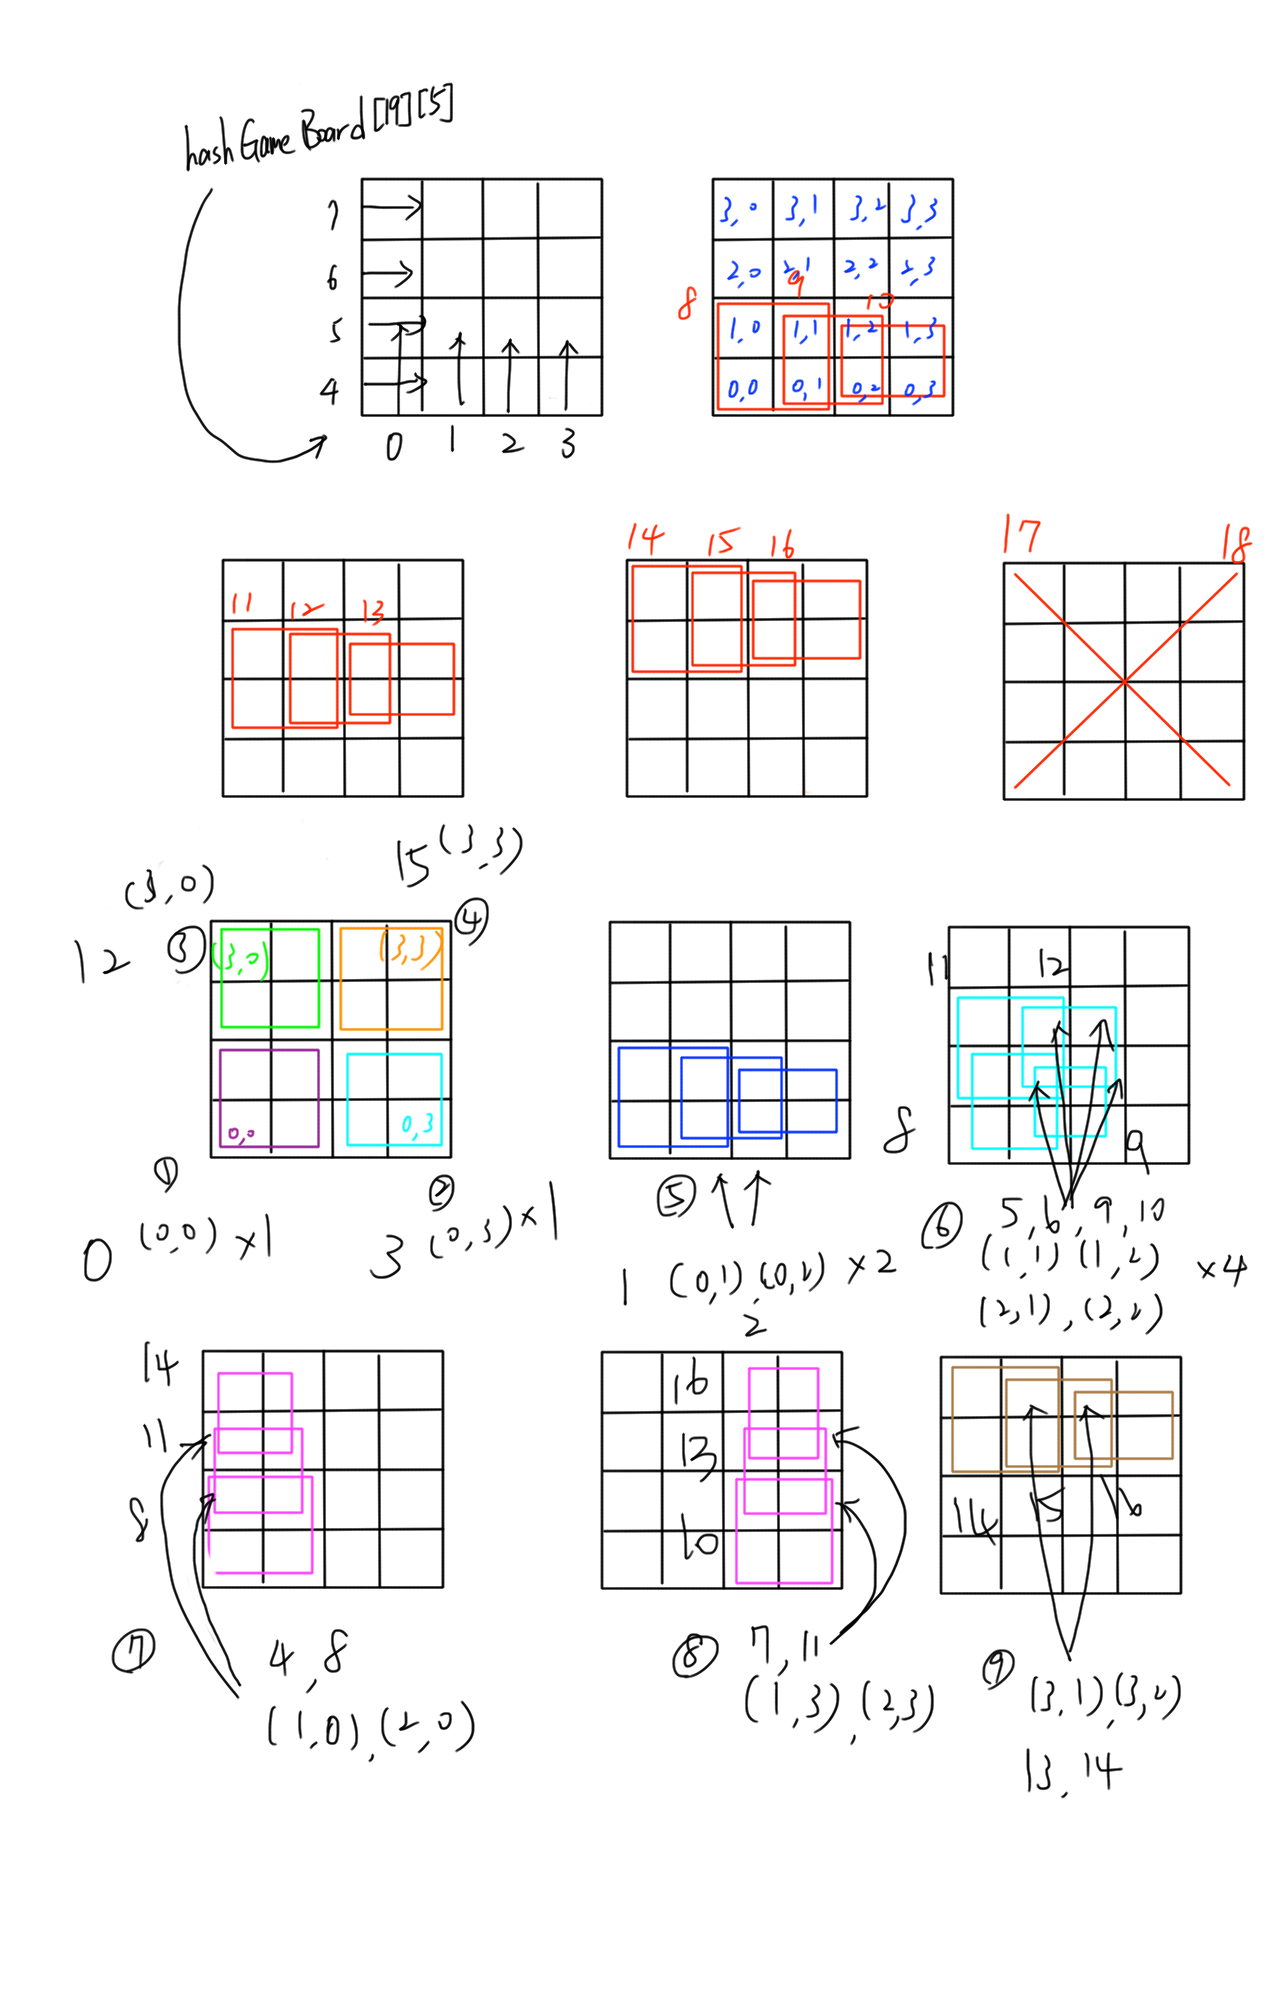 hashGameBoard[19][5]
7
6
5
4
0 1 2 3
3,0 3,1 3,2 3,3
2,0 2,1 2,2 2,3
8 9 10
1,0 1,1 1,2 1,3
0,0 0,1 0,2 0,3
11 12 13
14 15 16
17 18
(3,0)
12 ③ (3,0)
15 (3,3)
(3,3) ④
0,0
0,3
①
0 (0,0) ×1
②
3 (0,3) ×1
⑤
1 (0,1),(0,2) ×2
2
11 12
8 9
⑥ 5,6,9,10
(1,1) (1,2) ×4
(2,1),(2,2)
14
11
8
⑦ 4,8
(1,0),(2,0)
16
13
10
⑧ 7,11
(1,3),(2,3)
14 15 16
⑨ (3,1),(3,2)
13,14